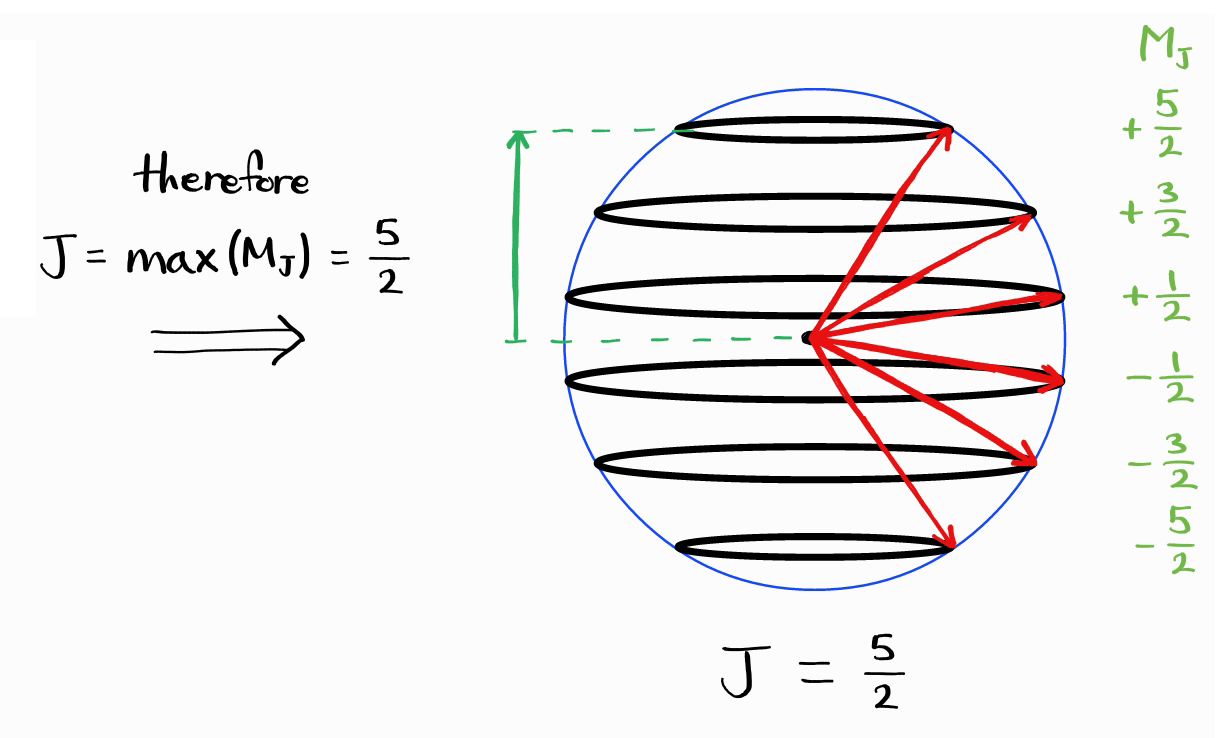 therefore
J = max(M_J) = 5/2
M_J
+ 5/2
+ 3/2
+ 1/2
- 1/2
- 3/2
- 5/2
J = 5/2